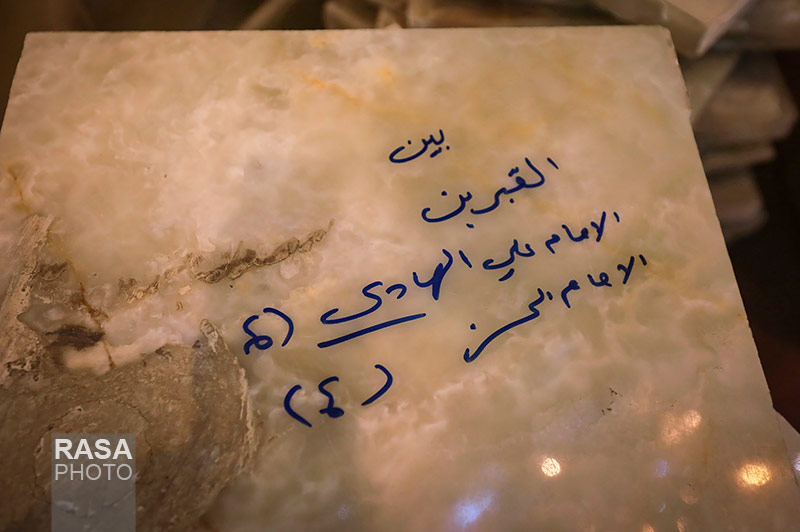 بين
القبرين
الامام علي الهادي (ع)
الامام الحسن
(ع)
RASA
PHOTO